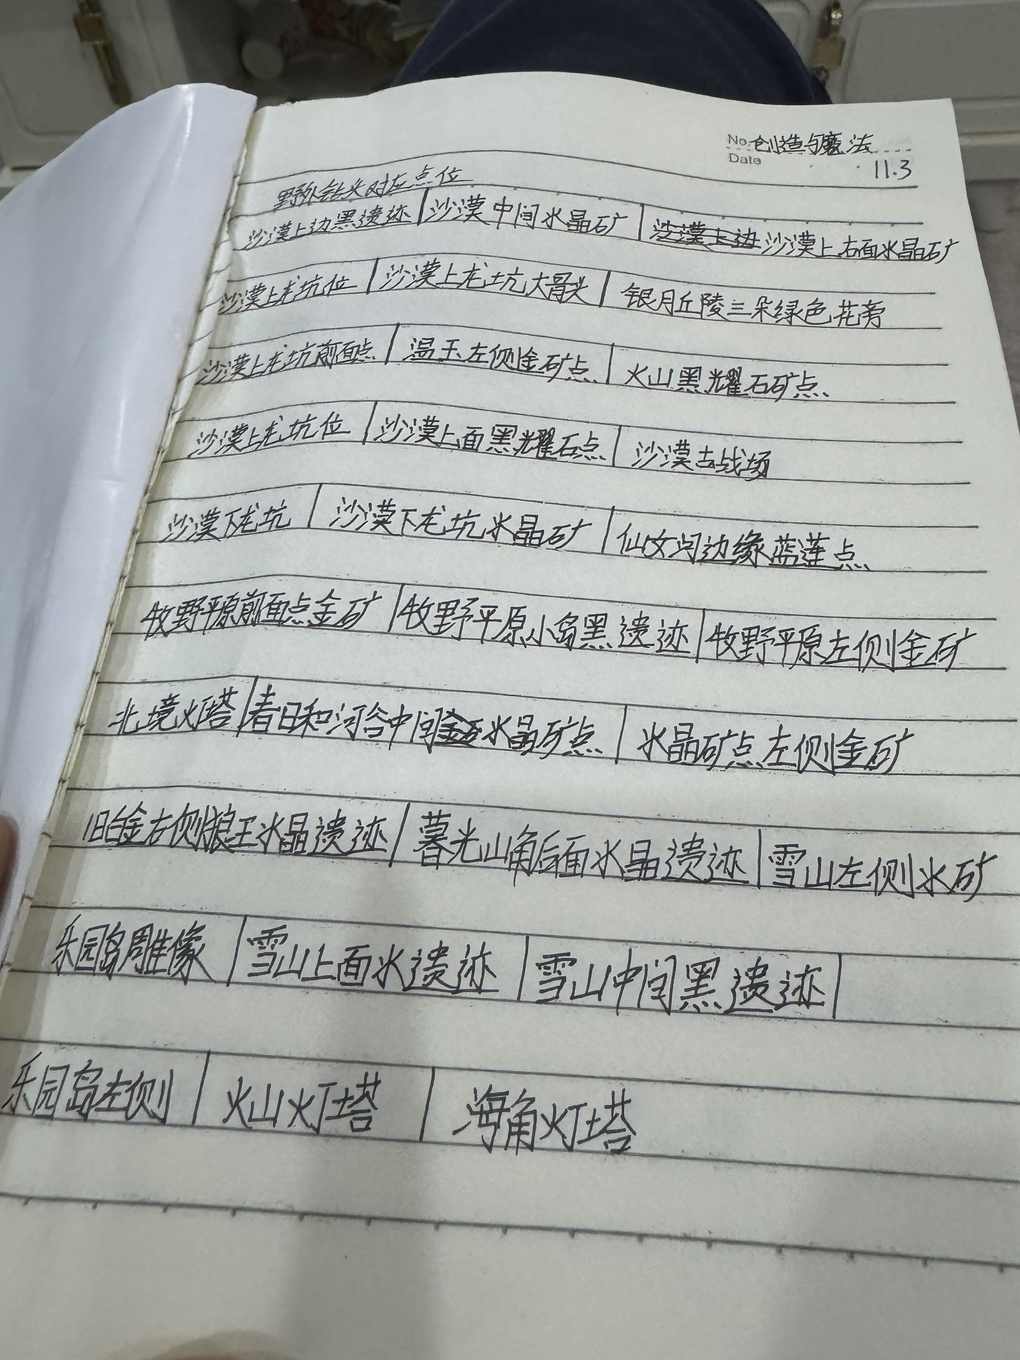 No. 创造与魔法
Date 11.3
野外钻头对应点位
沙漠上边黑遗迹 | 沙漠中间水晶矿 | 沙漠上边沙漠上右面水晶矿
沙漠上龙坑位 | 沙漠上龙坑大骨头 | 银月丘陵三朵绿色花旁
沙漠上龙坑前面点 | 温玉左侧金矿点 | 火山黑耀石矿点
沙漠上龙坑位 | 沙漠上面黑耀石点 | 沙漠古战场
沙漠下龙坑 | 沙漠下龙坑水晶矿 | 仙女河边缘蓝莲点
牧野平原前面点金矿 | 牧野平原小岛黑遗迹 | 牧野平原左侧金矿
北境灯塔 | 春日和河谷中间水晶矿点 | 水晶矿点左侧金矿
旧白金右侧狼王水晶遗迹 | 暮光山角后面水晶遗迹 | 雪山左侧水矿
乐园岛雕像 | 雪山上面水遗迹 | 雪山中间黑遗迹 |
乐园岛左侧 | 火山灯塔 | 海角灯塔